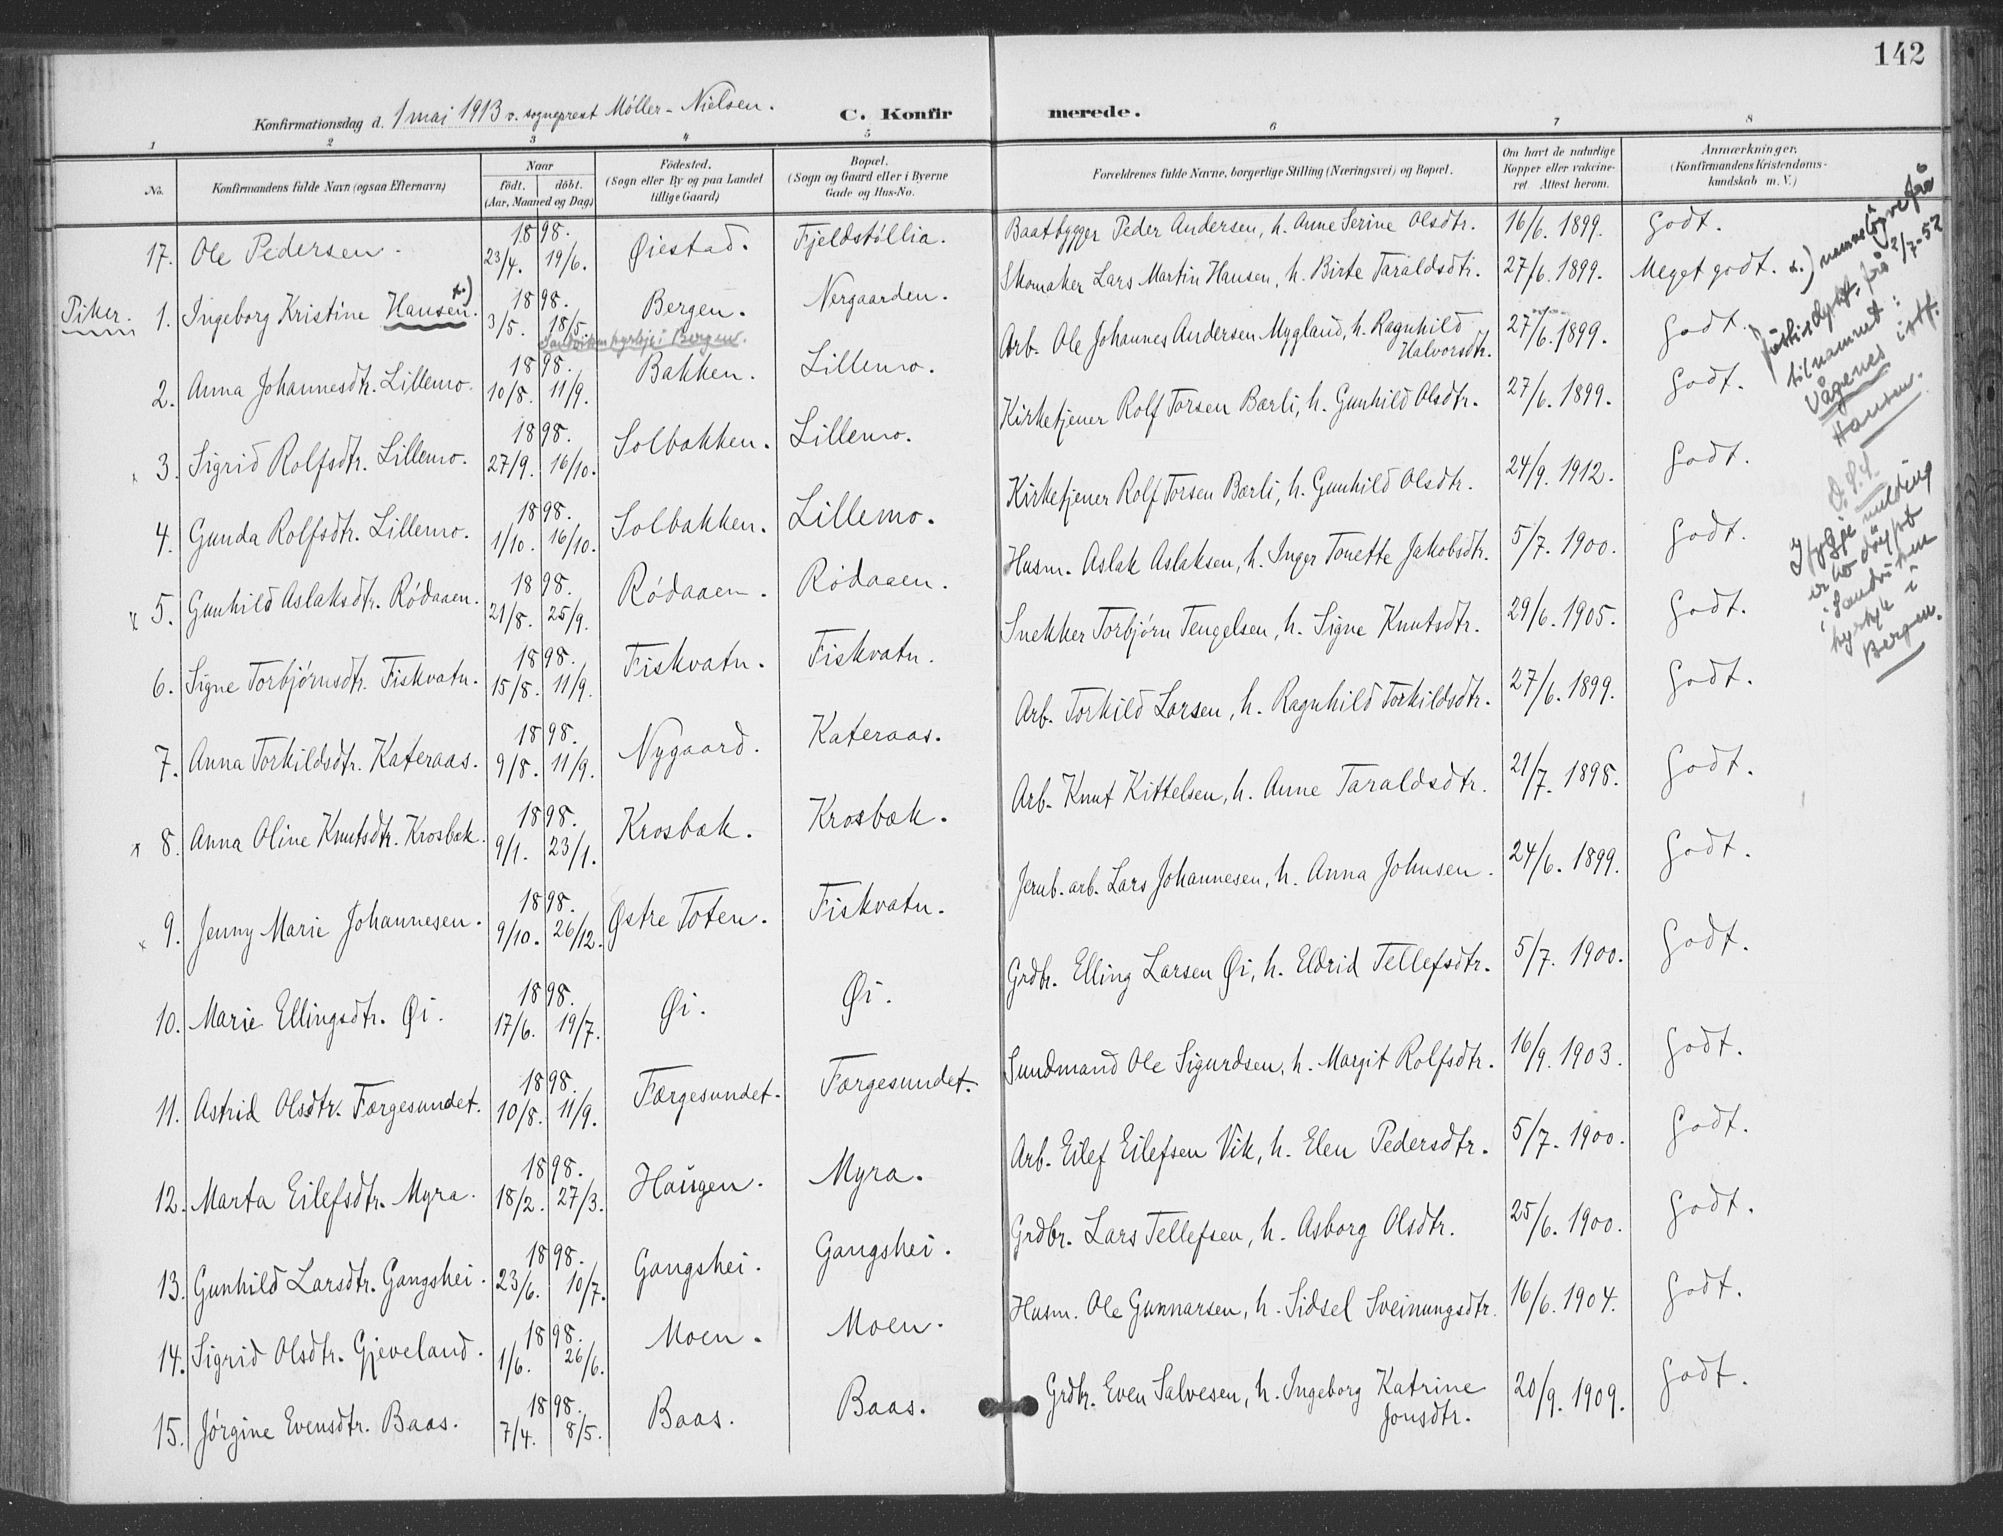 142
Konfirmationsdag d. 1 mai 1913 v. sogneprest Møller-Nielsen. C. Konfirmerede.
1 2 3 4 5 6 7 8
No. Konfirmandens fulde Navn (ogsaa Efternavn) Naar født. døbt. (Aar, Maaned og Dag) Fødested. (Sogn eller By og paa Landet tillige Gaard) Bopæl. (Sogn og Gaard eller i Byerne Gade og Hus-No. Forældrenes fulde Navne, borgerlige Stilling (Næringsvei) og Bopæl. Om havt de naturlige Kopper eller vakcineret Attest herom. Anmærkninger. (Konfirmandens Kristendomskundskab m. V.)
17. Ole Pedersen. 1898. 23/4. 19/6. Øiestad. Fjeldstøllia. Baatbygger Peder Andersen, h. Anne Serine Olsdtr. 16/6. 1899. Godt.
Piker. 1. Ingeborg Kristine Hansen. x.) 1898. 3/5. 18/5. Bergen. Nergaarden. Skomaker Lars Martin Hansen, h. Birte Taraldsdtr. 27/6. 1899. Meget godt. x.) namneløyve frå
Sandviken kyrkje i Bergen.
Justisdept. frå 2/7-52
til namnet:
Vågenes istf.
Hansen.
2. Anna Johannesdtr. Lillemo. 1898. 10/8. 11/9. Bakken. Lillemo. Arb. Ole Johannes Andersen Mygland, h. Ragnhild Halvorsdtr. 27/6. 1899. Godt.
3. Sigrid Rolfsdtr. Lillemo. 1898. 27/9. 16/10. Solbakken. Lillemo. Kirketjener Rolf Torsen Bærli, h. Gunhild Olsdtr. 27/6. 1899. Godt.
4. Gunda Rolfsdtr. Lillemo. 1898. 1/10. 16/10. Solbakken. Lillemo. Kirketjener Rolf Torsen Bærli, h. Gunhild Olsdtr. 24/9. 1912. Godt.
melding
er ho døypt
i Sandviken
kyrkje i
Bergen.
x 5. Gunhild Aslaksdtr. Rødaaen. 1898. 21/8. 25/9. Rødaaen. Rødaaen. Husm. Aslak Aslaksen, h. Inger Tonette Jakobsdtr. 5/7. 1900. Godt.
6. Signe Torbjørnsdtr. Fiskvatn. 1898. 15/8. 11/9. Fiskvatn. Fiskvatn. Snekker Torbjørn Tengelsen, h. Signe Knutsdtr. 29/6. 1905. Godt.
7. Anna Torkildsdtr. Kateraas. 1898. 9/8. 11/9. Nygaard. Kateraas. Arb. Torkild Larsen, h. Ragnhild Torkildsdtr. 27/6. 1899. Godt.
x 8. Anna Oline Knutsdtr. Krosbæk. 1898. 9/1. 23/1. Krosbæk. Krosbæk. Arb. Knut Kittelsen, h. Anne Taraldsdtr. 21/7. 1898. Godt.
x 9. Jenny Marie Johannesen. 1898. 9/10. 26/12. Østre Toten. Fiskvatn. Jernb. arb. Lars Johannesen, h. Anna Johnsen. 24/6. 1899. Godt.
10. Marie Ellingsdtr. Øi. 1898. 17/6. 19/7. Øi. Øi. Grdbr. Elling Larsen Øi, h. Eldrid Tellefsdtr. 5/7. 1900. Godt.
11. Astrid Olsdtr. Færgesundet. 1898. 10/8. 11/9. Færgesundet. Færgesundet. Sundmand Ole Sigurdsen, h. Margit Rolfsdtr. 16/9. 1903. Godt.
12. Marta Eilefsdtr. Myra. 1898. 18/2. 27/3. Haugen. Myra. Arb. Eilef Eilefsen Vik, h. Elen Pedersdtr. 5/7. 1900. Godt.
13. Gunhild Larsdtr. Gangshei. 1898. 23/6. 10/7. Gangshei. Gangshei. Grdbr. Lars Tellefsen, h. Asborg Olsdtr. 25/6. 1900. Godt.
14. Sigrid Olsdtr. Gjeveland. 1898. 1/6. 26/6. Moen. Moen. Husm. Ole Gunnarsen, h. Sidsel Sveinungsdtr. 16/6. 1904. Godt.
15. Jørgine Evensdtr. Baas. 1898. 7/4. 8/5. Baas. Baas. Grdbr. Even Salvesen, h. Ingeborg Katrine Jonsdtr. 20/9. 1909. Godt.